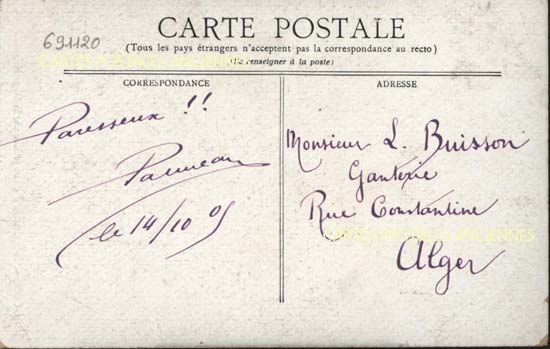 691120
CARTE POSTALE
(Tous les pays étrangers n'acceptent pas la correspondance au recto)
(Se renseigner à la poste)
CORRESPONDANCE
ADRESSE
Paresseux !!
le 14/10 05
Monsieur L. Buisson
Ganterie
Rue Constantine
Alger
CARTES POSTALES ANCIENNES